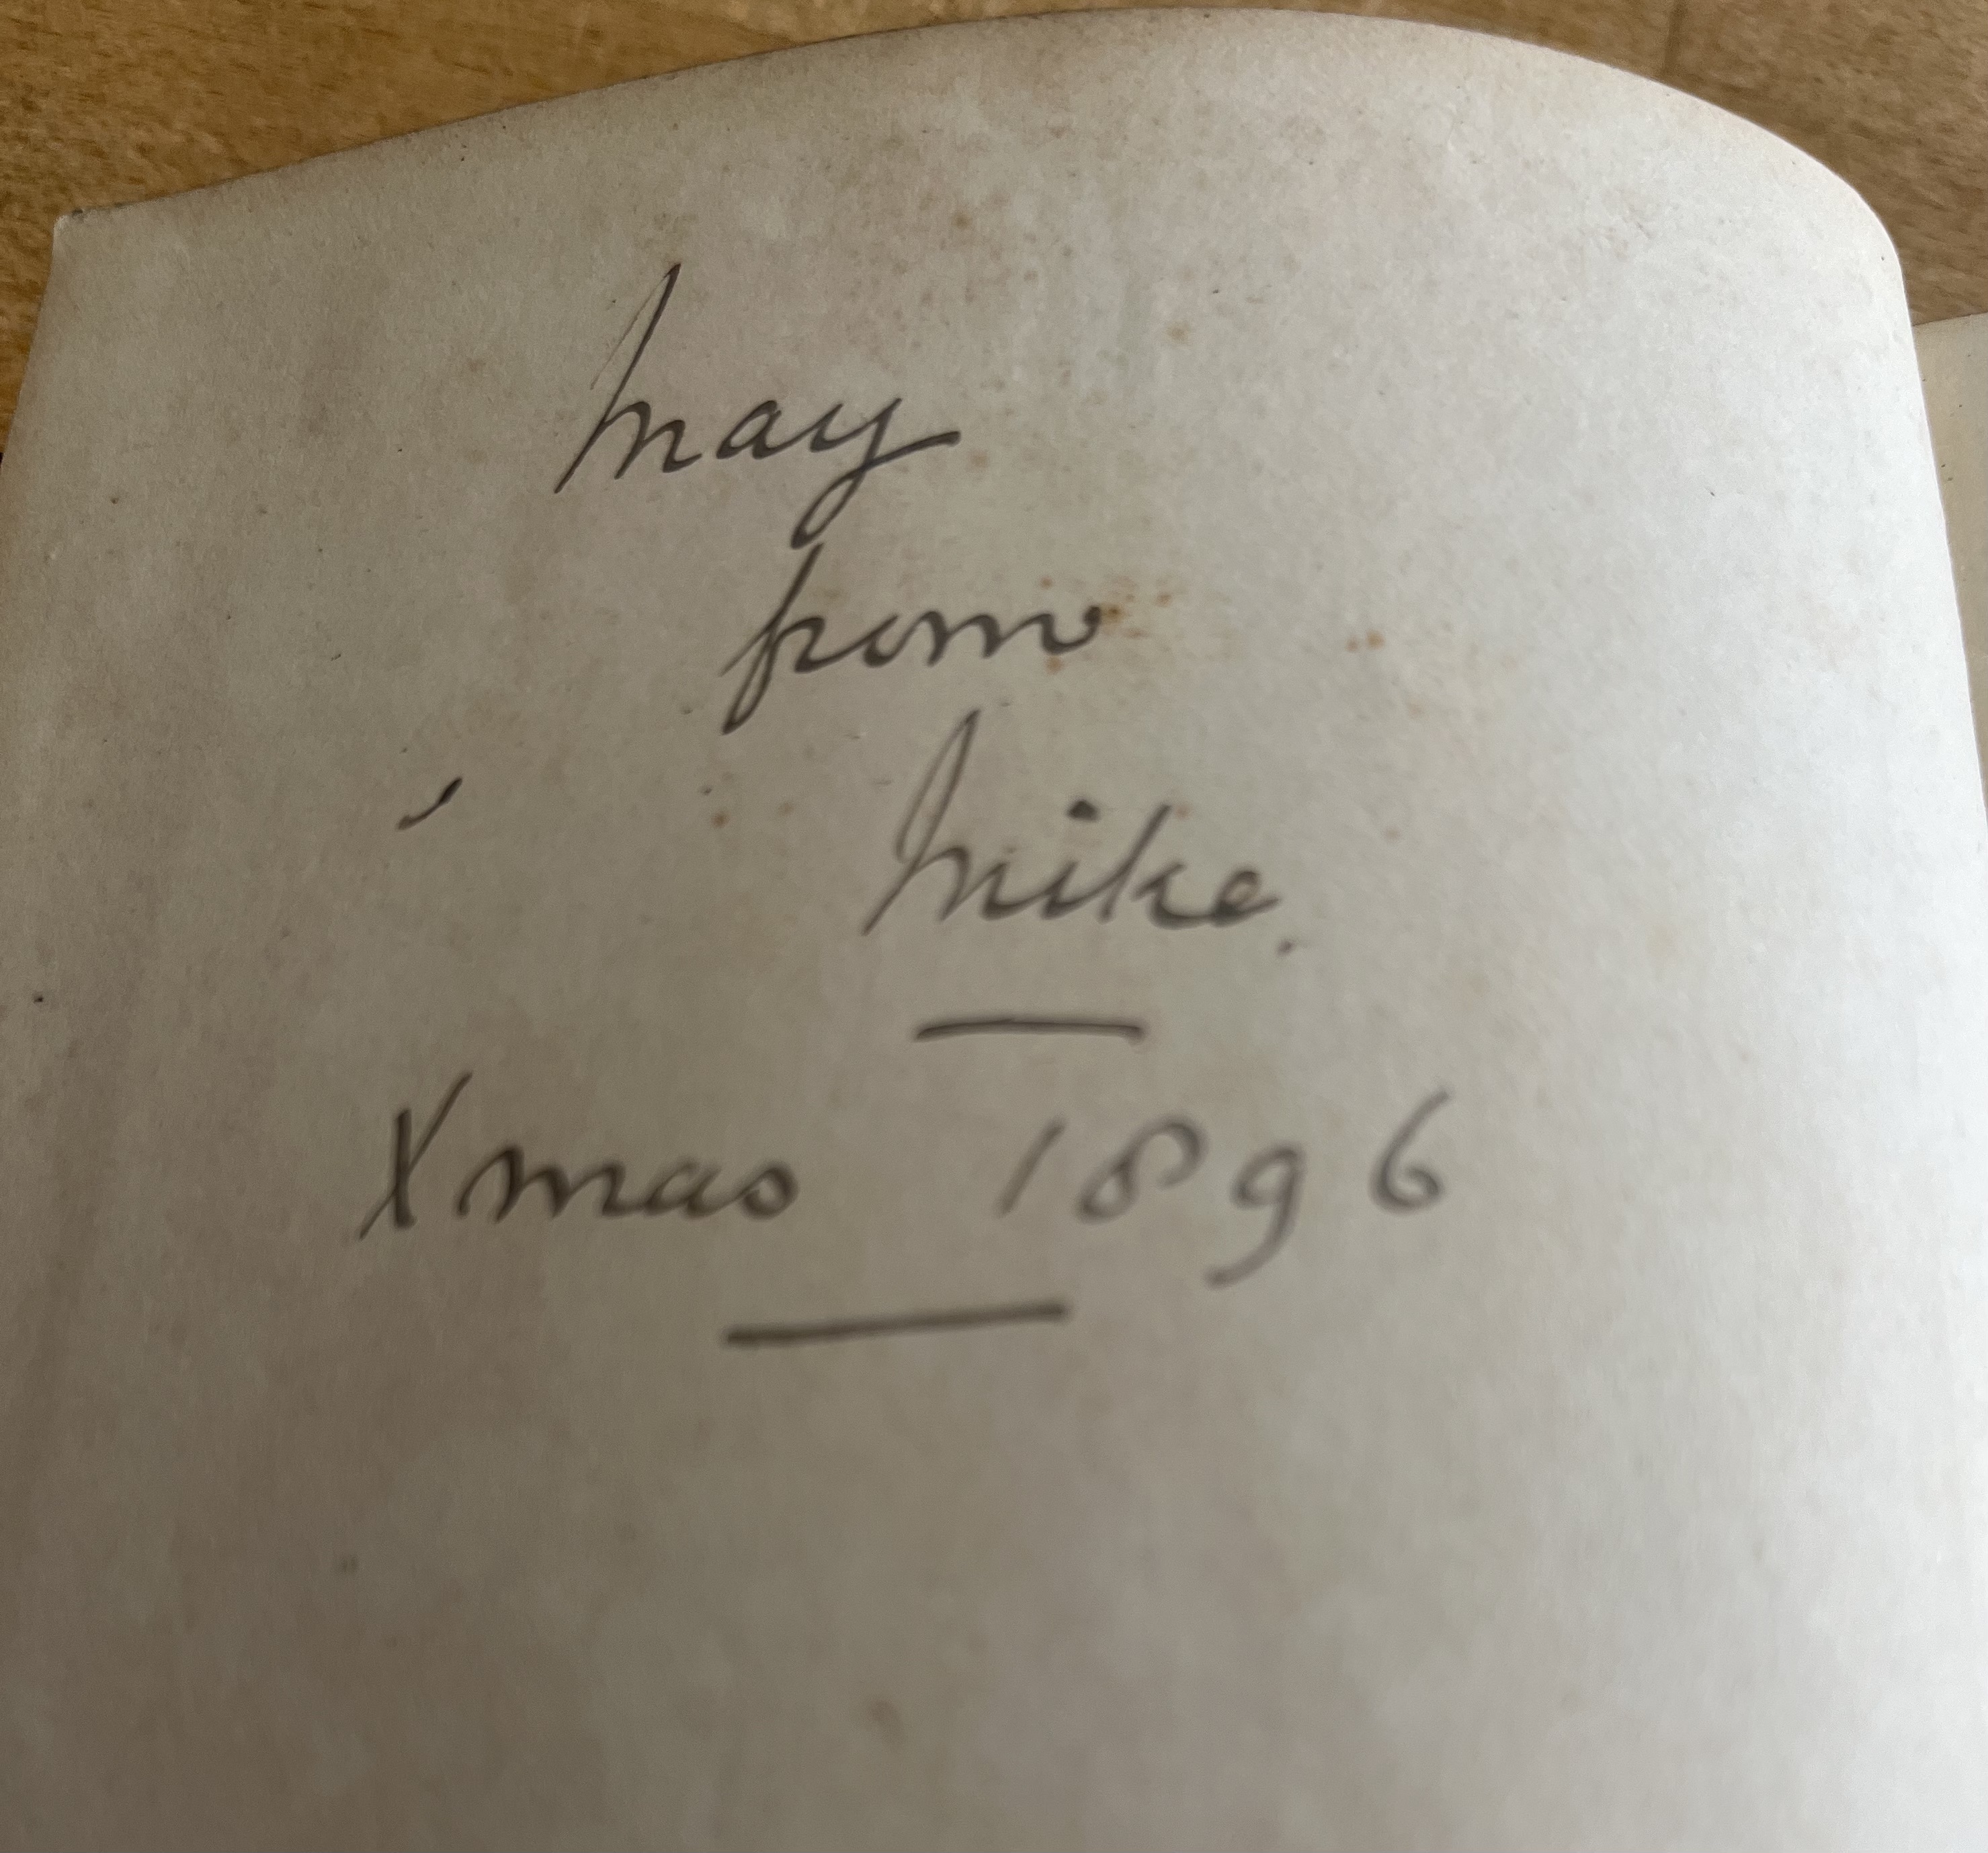 May
from
Mike.
Xmas 1896